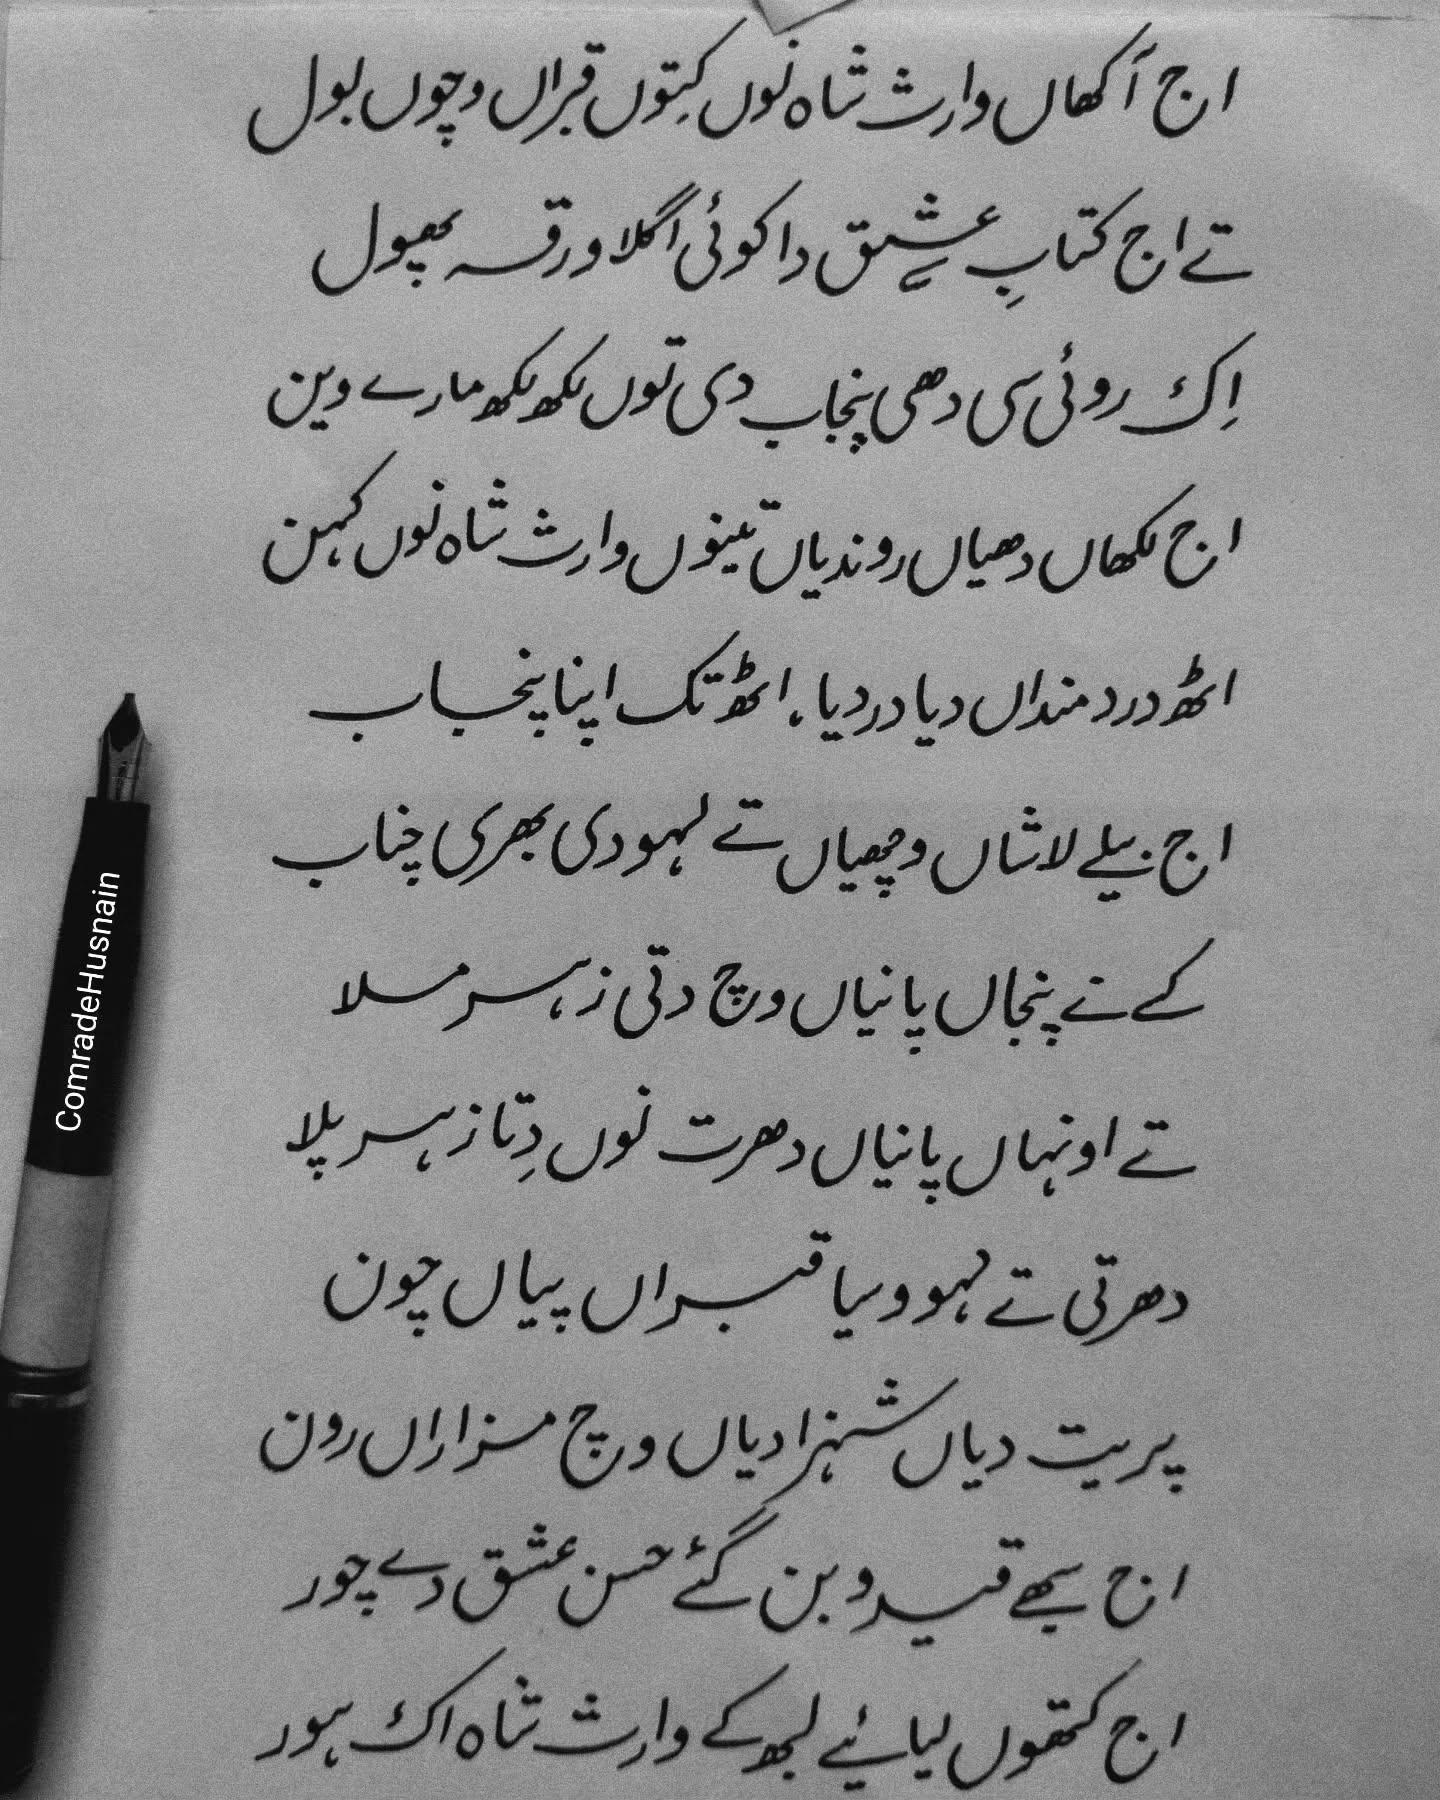 اج آکھاں وارث شاہ نوں کِتوں قبراں وچوں بول
تے اج کتابِ عشق دا کوئی اگلا ورقہ پھول
اِک روئی سی دھی پنجاب دی توں لکھ لکھ مارے وین
اج لکھاں دھیاں روندیاں تینوں وارث شاہ نوں کہن
اٹھ دردمنداں دیا دردیا، اٹھ تک اپنا پنجاب
اج بیلے لاشاں وچھیاں تے لہو دی بھری چناب
کسے نے پنجاں پانیاں وچ دتی زہر ملا
تے اونہاں پانیاں دھرت نوں دِتا زہر پلا
دھرتی تے لہو وسیا قبراں پیاں چون
پریت دیاں شہزادیاں وچ مزاراں رون
اج سبھے قیدو بن گئے حسن عشق دے چور
اج کتھوں لیائیے لبھ کے وارث شاہ اک ہور
ComradeHusnain